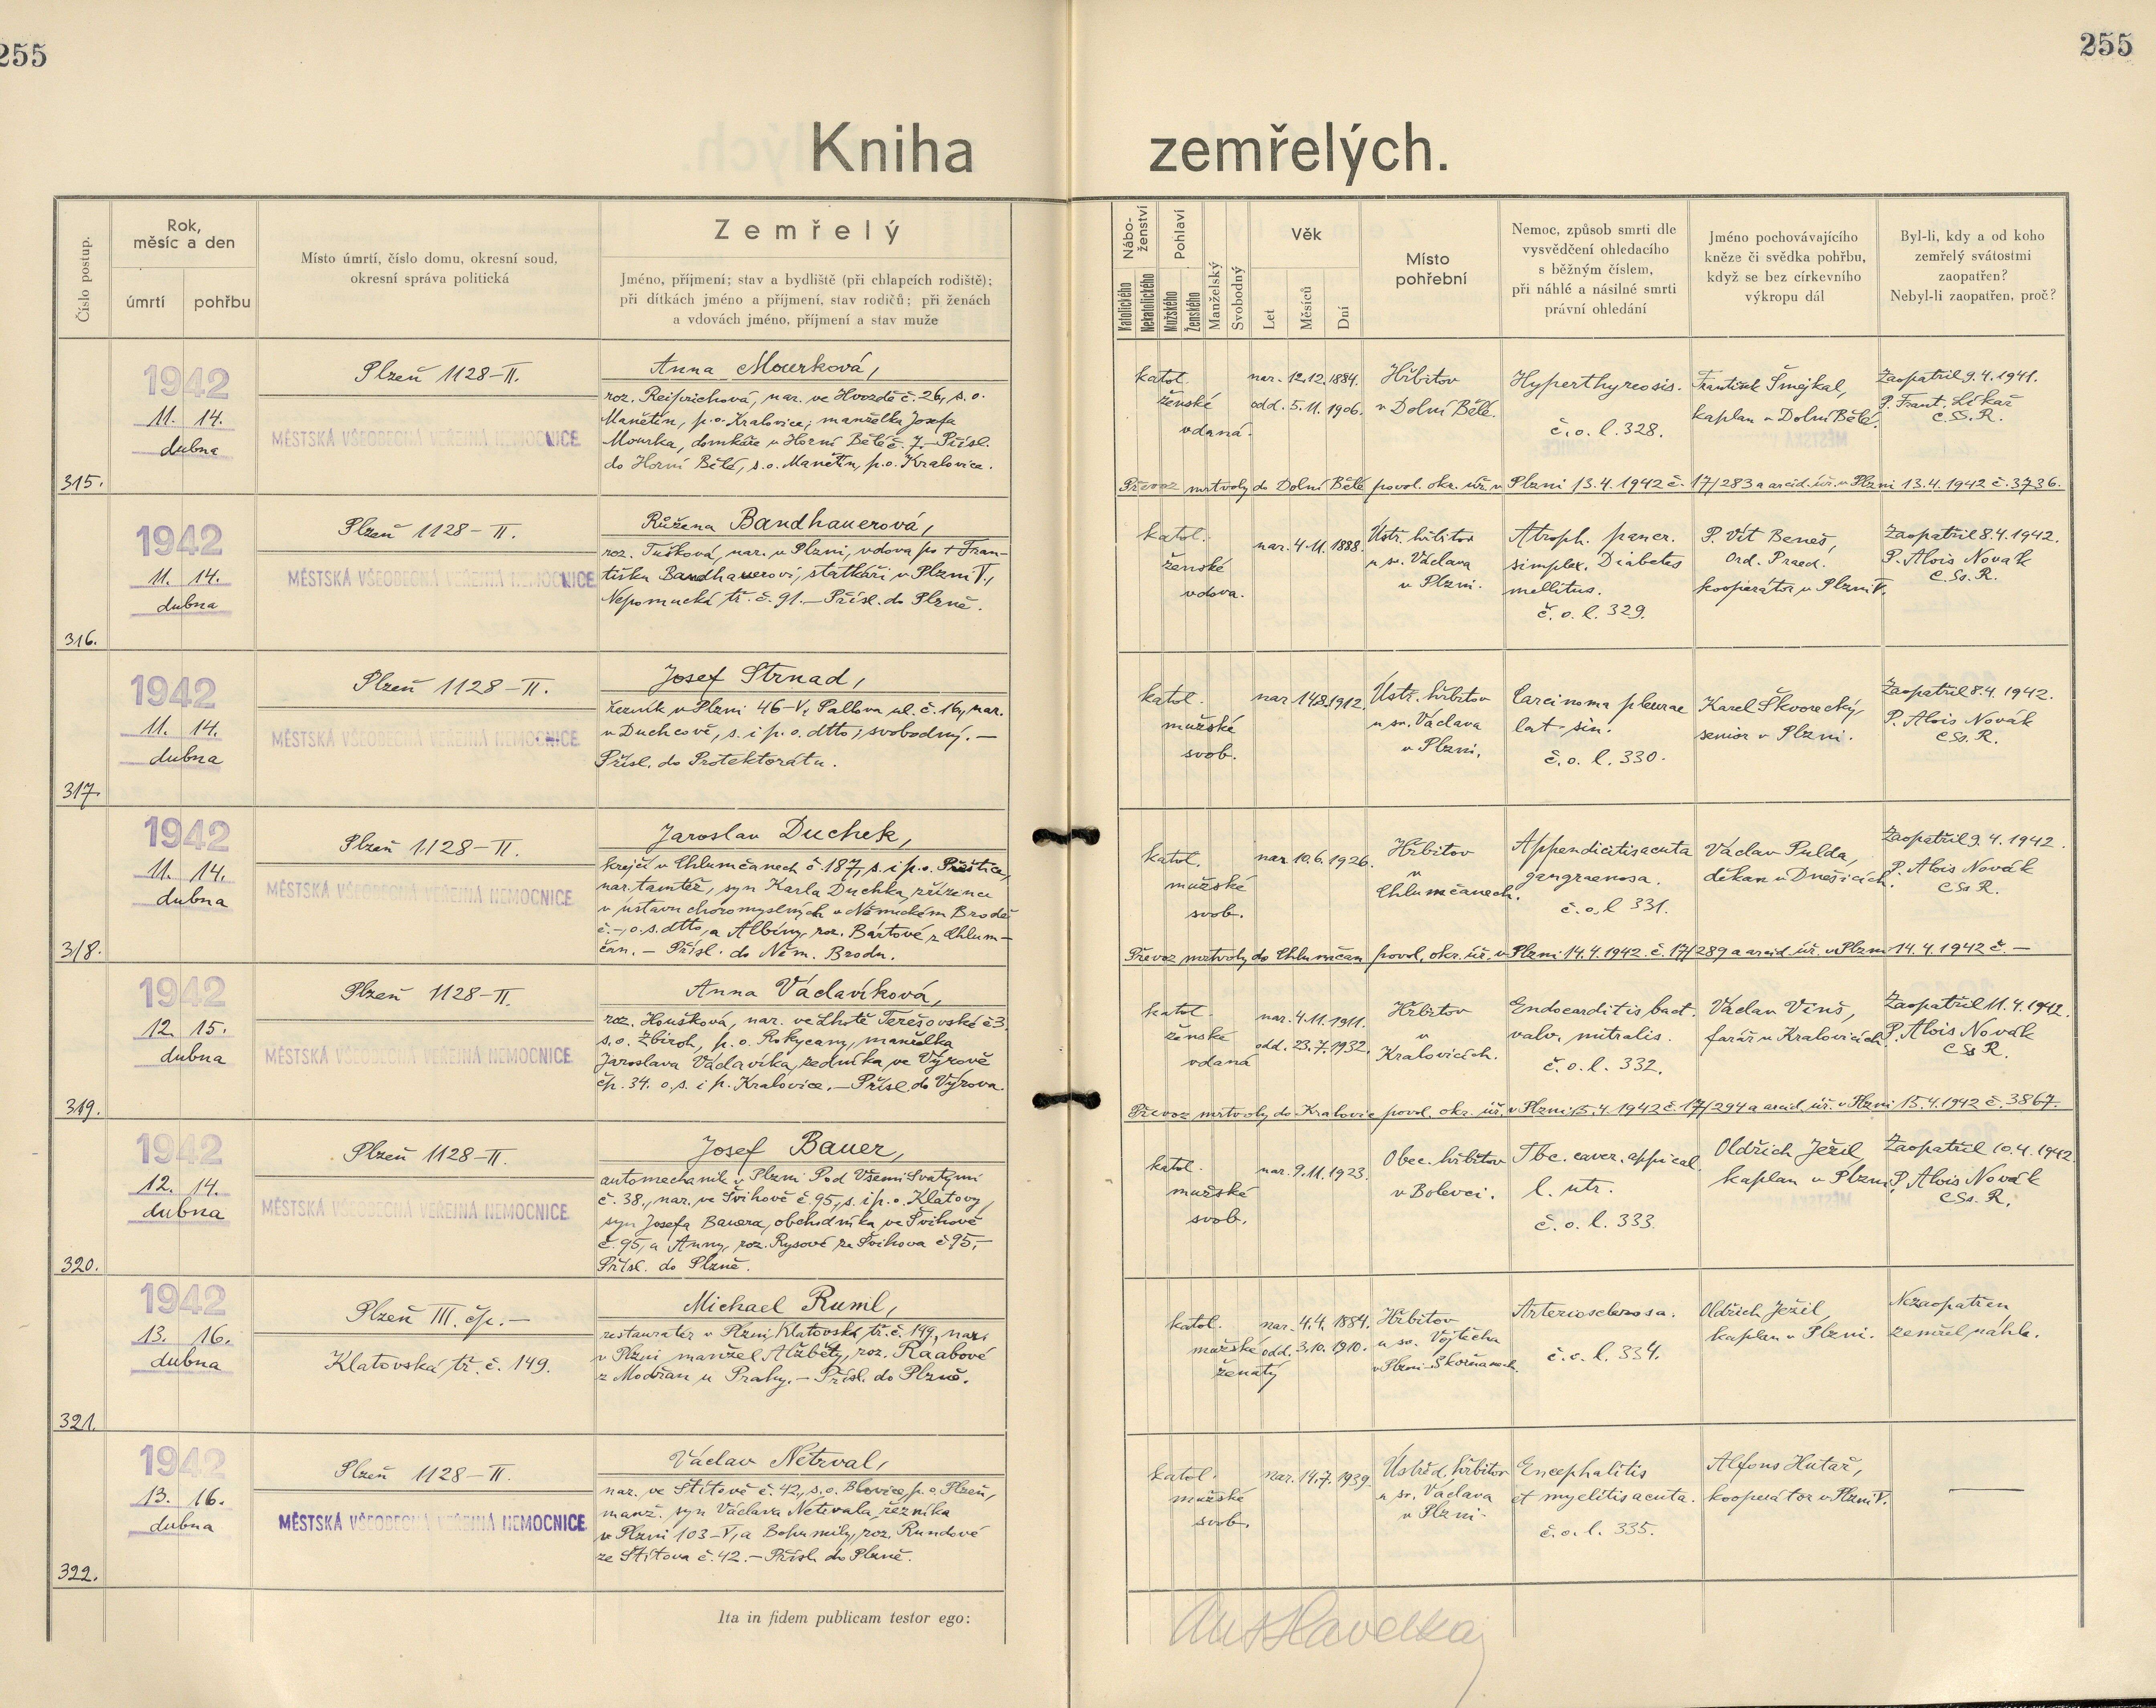 255
255
Kniha zemřelých.
Číslo postup.
Rok, měsíc a den
úmrtí
pohřbu
Místo úmrtí, číslo domu, okresní soud,
okresní správa politická
Zemřelý
Jméno, příjmení; stav a bydliště (při chlapcích rodiště);
při dítkách jméno a příjmení, stav rodičů; při ženách
a vdovách jméno, příjmení a stav muže
Nábo-
ženství
Katolického
Nekatolického
Pohlaví
Mužského
Ženského
Manželský
Svobodný
Věk
Let
Měsíců
Dní
Místo
pohřební
Nemoc, způsob smrti dle
vysvědčení ohledacího
s běžným číslem,
při náhlé a násilné smrti
právní ohledání
Jméno pochovávajícího
kněze či svědka pohřbu,
když se bez církevního
výkropu dál
Byl-li, kdy a od koho
zemřelý svátostmi
zaopatřen?
Nebyl-li zaopatřen, proč?
315.
1942
11. 14.
dubna
Plzeň 1128-II.
MĚSTSKÁ VŠEOBECNÁ VEŘEJNÁ NEMOCNICE
Anna Mourková,
roz. Reiprichová, nar. ve Hvozdě č. 26, s. o.
Manětín, p. o. Kralovice; manželka Josefa
Mourka, domkáře v Horní Bělé č. 7. – Přísl.
do Horní Bělé, s. o. Manětín, p. o. Kralovice.
katol.
ženské
vdaná.
nar. 12.12.1884.
odd. 5.11.1906.
Hřbitov
v Dolní Bělé.
Hyperthyreosis.
č. o. l. 328.
František Šmejkal,
kaplan v Dolní Bělé.
Zaopatřil 9.4.1941.
P. Frant. Lékař
C.Ss.R.
Převoz mrtvoly do Dolní Bělé povol. okr. úř. v Plzni 13.4.1942 č. 17/283 a arcid. úř. v Plzni 13.4.1942 č. 3736.
316.
1942
11. 14.
dubna
Plzeň 1128-II.
MĚSTSKÁ VŠEOBECNÁ VEŘEJNÁ NEMOCNICE
Růžena Bandhauerová,
roz. Tušková, nar. v Plzni, vdova po + Fran-
tišku Bandhauerovi, statkáři v Plzni V.,
Nepomucká tř. č. 91. – Přísl. do Plzně.
katol.
ženské
vdova.
nar. 4.11.1888.
Ústř. hřbitov
u sv. Václava
v Plzni.
Atroph. pancr.
simplex. Diabetes
mellitus.
č. o. l. 329.
P. Vít Beneš,
Ord. Praed.
kooperátor v Plzni V.
Zaopatřil 8.4.1942.
P. Alois Novák
C.Ss.R.
317.
1942
11. 14.
dubna
Plzeň 1128-II.
MĚSTSKÁ VŠEOBECNÁ VEŘEJNÁ NEMOCNICE
Josef Strnad,
řezník v Plzni 46-V, Pallova ul. č. 16, nar.
v Duchcově, s. i p. o. dtto; svobodný. –
Přísl. do Protektorátu.
katol.
mužské
svob.
nar. 14.8.1912.
Ústř. hřbitov
u sv. Václava
v Plzni.
Carcinoma pleurae
lat. sin.
č. o. l. 330.
Karel Škvorecký,
senior v Plzni.
Zaopatřil 8.4.1942.
P. Alois Novák
C.Ss.R.
318.
1942
11. 14.
dubna
Plzeň 1128-II.
MĚSTSKÁ VŠEOBECNÁ VEŘEJNÁ NEMOCNICE
Jaroslav Duchek,
krejčí v Chlumčanech č. 187, s. i p. o. Přeštice,
nar. tamtéž, syn Karla Duchka, zřízence
v ústavu choromyslných v Německém Brodě
č. –, o. s. dtto, a Albíny, roz. Bártové z Chlum-
čan. – Přísl. do Něm. Brodu.
katol.
mužské
svob.
nar. 10.6.1926.
Hřbitov
v
Chlumčanech.
Appendicitis acuta
gangraenosa.
č. o. l. 331.
Václav Pulda,
děkan v Dnešicích.
Zaopatřil 9.4.1942.
P. Alois Novák
C.Ss.R.
Převoz mrtvoly do Chlumčan povol. okr. úř. v Plzni 14.4.1942. č. 17/289 a arcid. úř. v Plzni 14.4.1942 č –
319.
1942
12. 15.
dubna
Plzeň 1128-II.
MĚSTSKÁ VŠEOBECNÁ VEŘEJNÁ NEMOCNICE
Anna Václavíková,
roz. Houšková, nar. ve Lhotě Terešovské č 3.
s. o. Zbiroh, p. o. Rokycany, manželka
Jaroslava Václavíka, zedníka ve Výrově
čp. 34. o. s. i p. Kralovice. – Přísl. do Výrova.
katol.
ženské
vdaná
nar. 4.11.1911.
odd. 23.7.1932.
Hřbitov
v
Kralovicích.
Endocarditis bact.
valv. mitralis.
č. o. l. 332.
Václav Vinš,
farář v Kralovicích.
Zaopatřil 11.4.1942.
P. Alois Novák
C.Ss.R.
Převoz mrtvoly do Kralovic povol. okr. úř. v Plzni 15.4.1942 č. 17/294 a arcid. úř. v Plzni 15.4.1942 č. 3867.
320.
1942
12. 14.
dubna
Plzeň 1128-II.
MĚSTSKÁ VŠEOBECNÁ VEŘEJNÁ NEMOCNICE
Josef Bauer,
automechanik v Plzni Pod Všemi Svatými
č. 38., nar. ve Švihově č 95, s. i p. o. Klatovy,
syn Josefa Bauera, obchodníka ve Švihově
č. 95, a Anny, roz. Rysové ze Švihova č 95, –
Přísl. do Plzně.
katol.
mužské
svob.
nar. 9.11.1923.
Obec. hřbitov
v Bolevci.
Tbc. caver. appical.
l. utr.
č. o. l. 333.
Oldřich Ježil,
kaplan v Plzni.
Zaopatřil 10.4.1942
P. Alois Novák
C.Ss.R.
321.
1942
13. 16.
dubna
Plzeň III. čp. –
Klatovská tř. č. 149.
Michael Ruml,
restauratér v Plzni, Klatovská tř. č. 149, nar.
v Plzni, manžel Alžběty, roz. Raabové
z Modřan u Prahy. – Přísl. do Plzně.
katol.
mužské
ženatý
nar. 4.4.1884.
odd. 3.10.1910.
Hřbitov
u sv. Vojtěcha
v Plzni-Skvrňanech.
Arteriosclerosa.
č. o. l. 334.
Oldřich Ježil,
kaplan v Plzni.
Nezaopatřen
zemřel náhle.
322.
1942
13. 16.
dubna
Plzeň 1128-II.
MĚSTSKÁ VŠEOBECNÁ VEŘEJNÁ NEMOCNICE
Václav Netrval,
nar. ve Štítově č. 42., s. o. Blovice, p. o. Plzeň,
manž. syn Václava Netrvala, řezníka
v Plzni 103-V, a Bohumily, roz. Rundové
ze Štítova č. 42. – Přísl. do Plzně.
katol.
mužské
svob.
nar. 14.7.1939.
Ústřed. hřbitov
u sv. Václava
v Plzni.
Encephalitis
et myelitis acuta.
č. o. l. 335.
Alfons Hutař,
kooperátor v Plzni V.
Ita in fidem publicam testor ego:
Ant Havelka